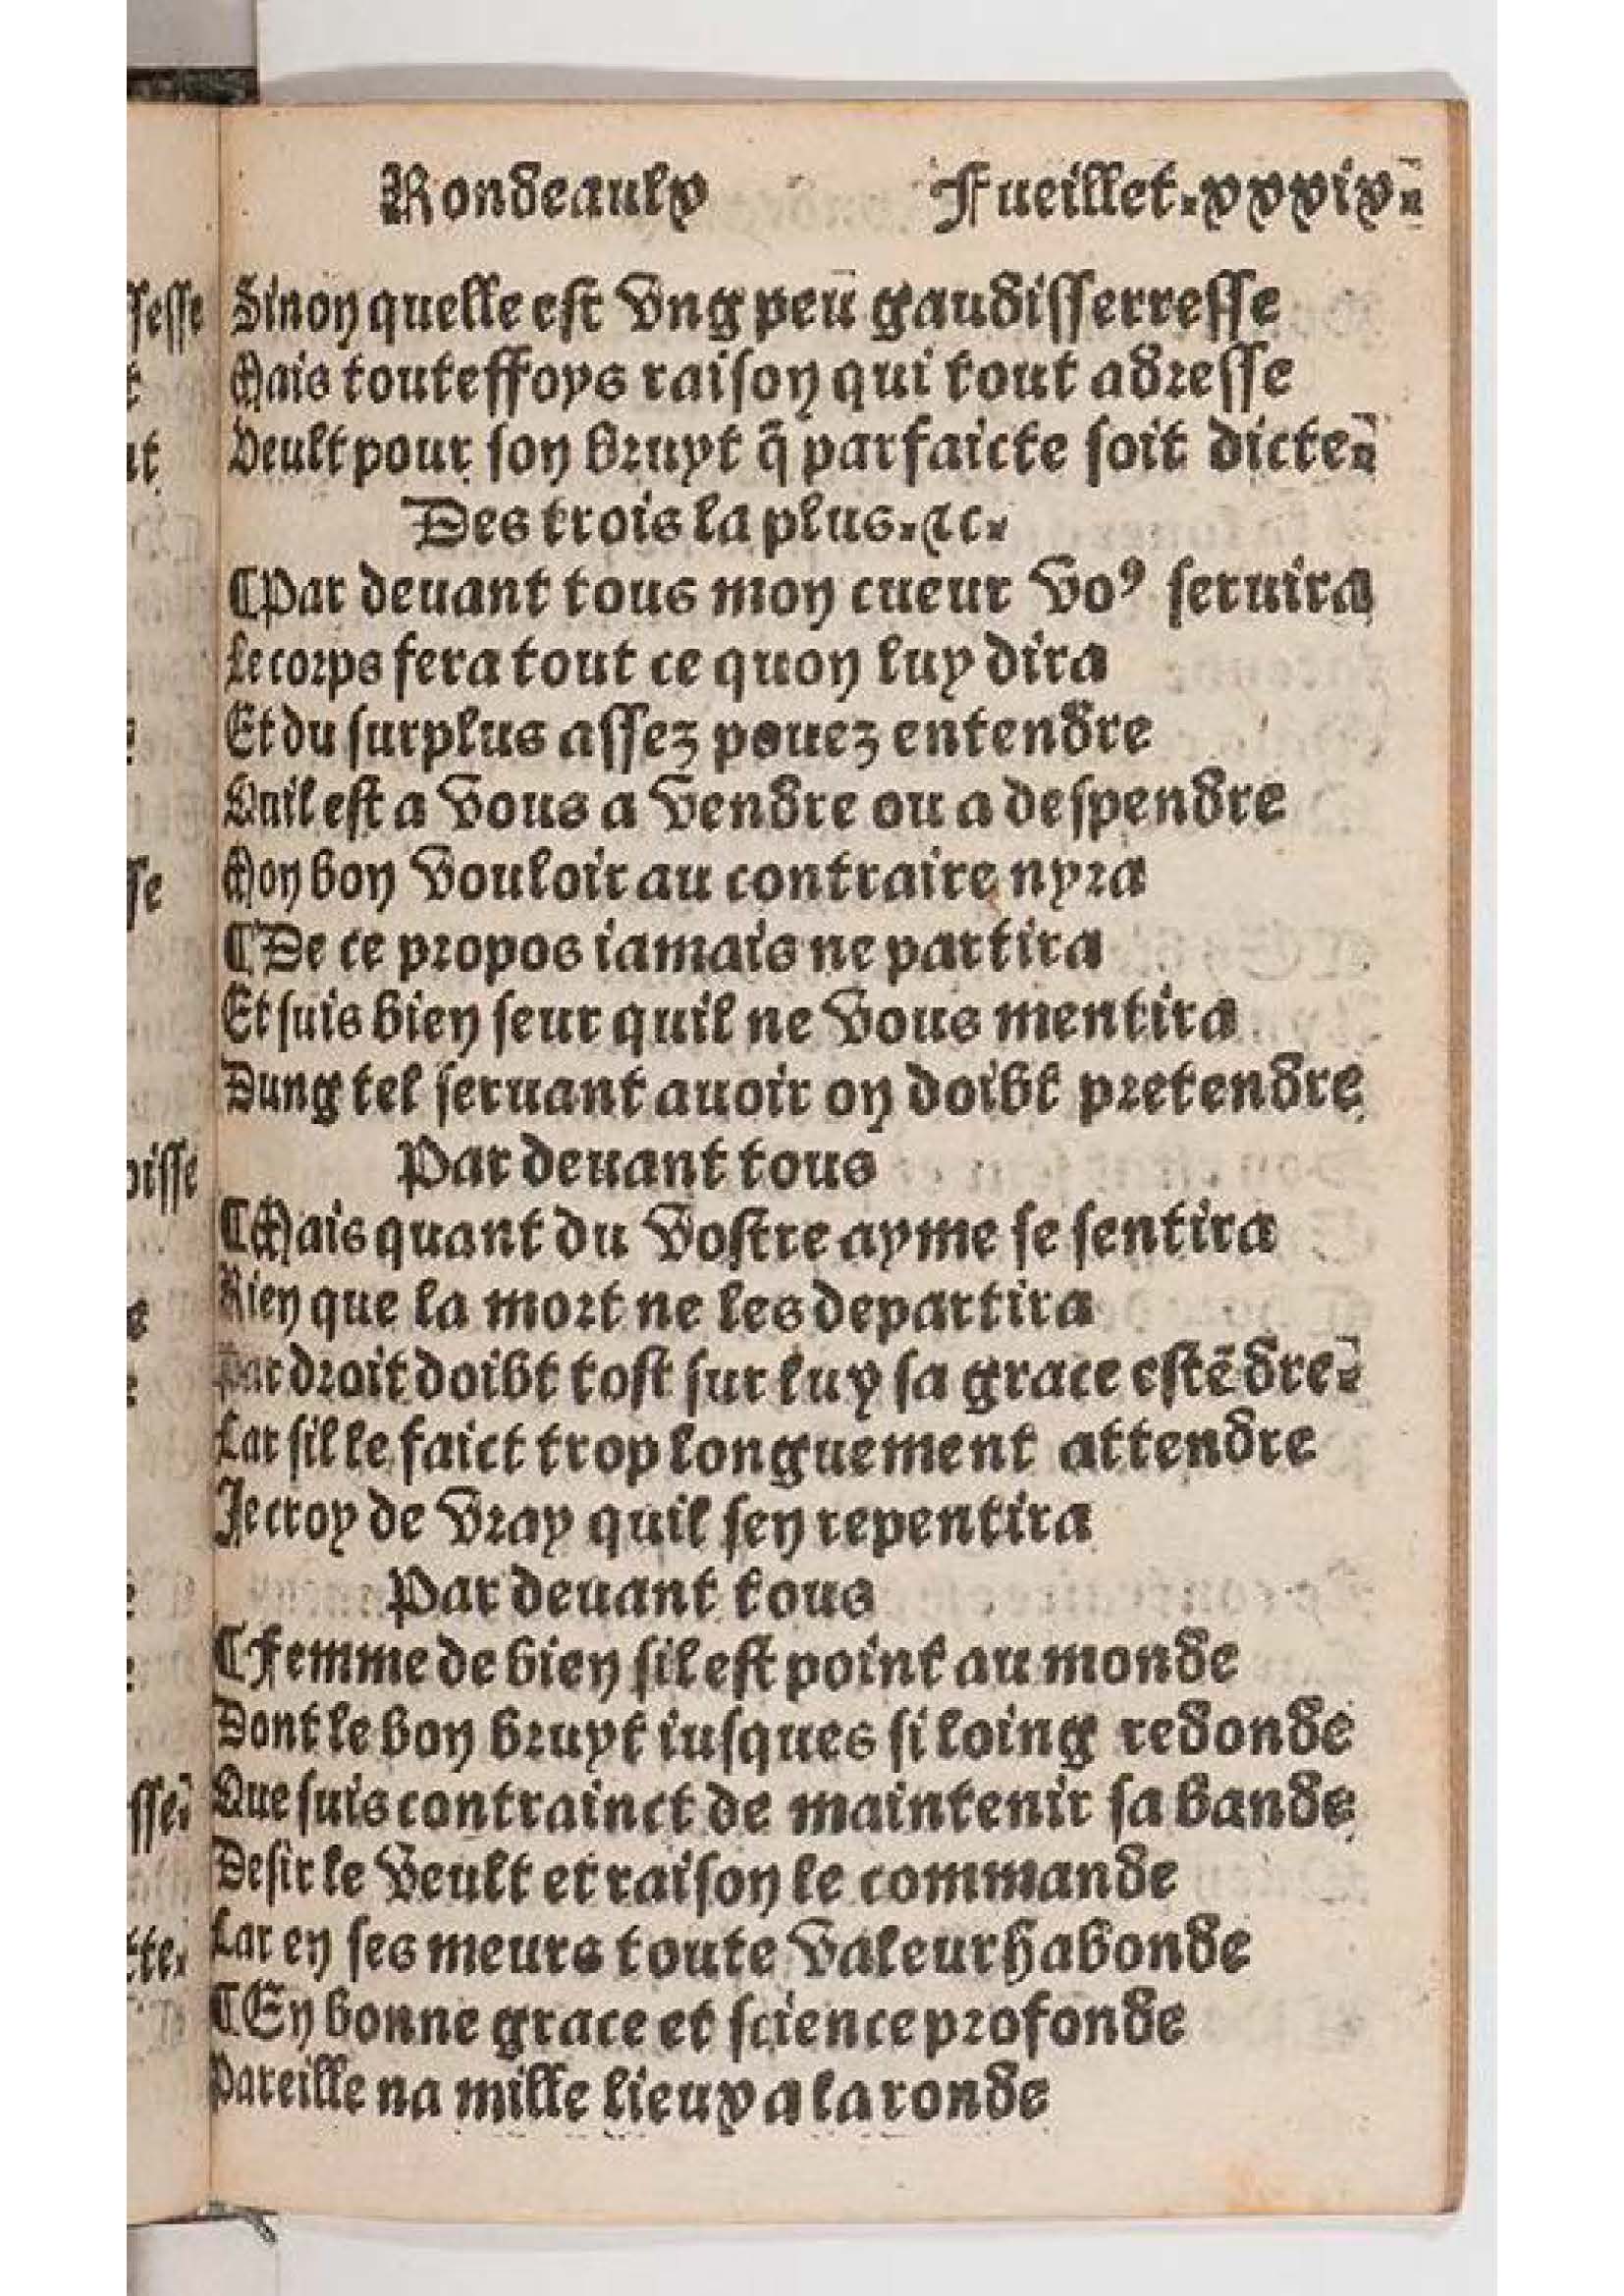 Rondeaulx Fueillet.xxxix.
Sinon quelle est vng peu gaudisserresse
Mais touteffoys raison qui tout adresse
Veult pour son bruyt q̃ parfaicte soit dicte.
Des trois la plus.⁊c.
¶Par deuant tous mon cueur voꝰ seruira
Le corps fera tout ce quon luy dira
Et du surplus assez pouez entendre
Quil est a vous a vendre ou a despendre
Mon bon vouloir au contraire nyra
¶De ce propos iamais ne partira
Et suis bien seur quil ne vous mentira
Dung tel seruant auoir on doibt pretendre
Par deuant tous
¶Mais quant du vostre ayme se sentira
Rien que la mort ne les departira
Par droit doibt tost sur luy sa grace estẽdre.
Car sil le faict trop longuement attendre
Je croy de vray quil sen repentira
Par deuant tous
¶Femme de bien sil est point au monde
Dont le bon bruyt iusques si loing redonde
Que suis contrainct de maintenir sa bande
Desir le veult et raison le commande
Car en ses meurs toute valeur habonde
¶En bonne grace et science profonde
Pareille na mille lieux a la ronde